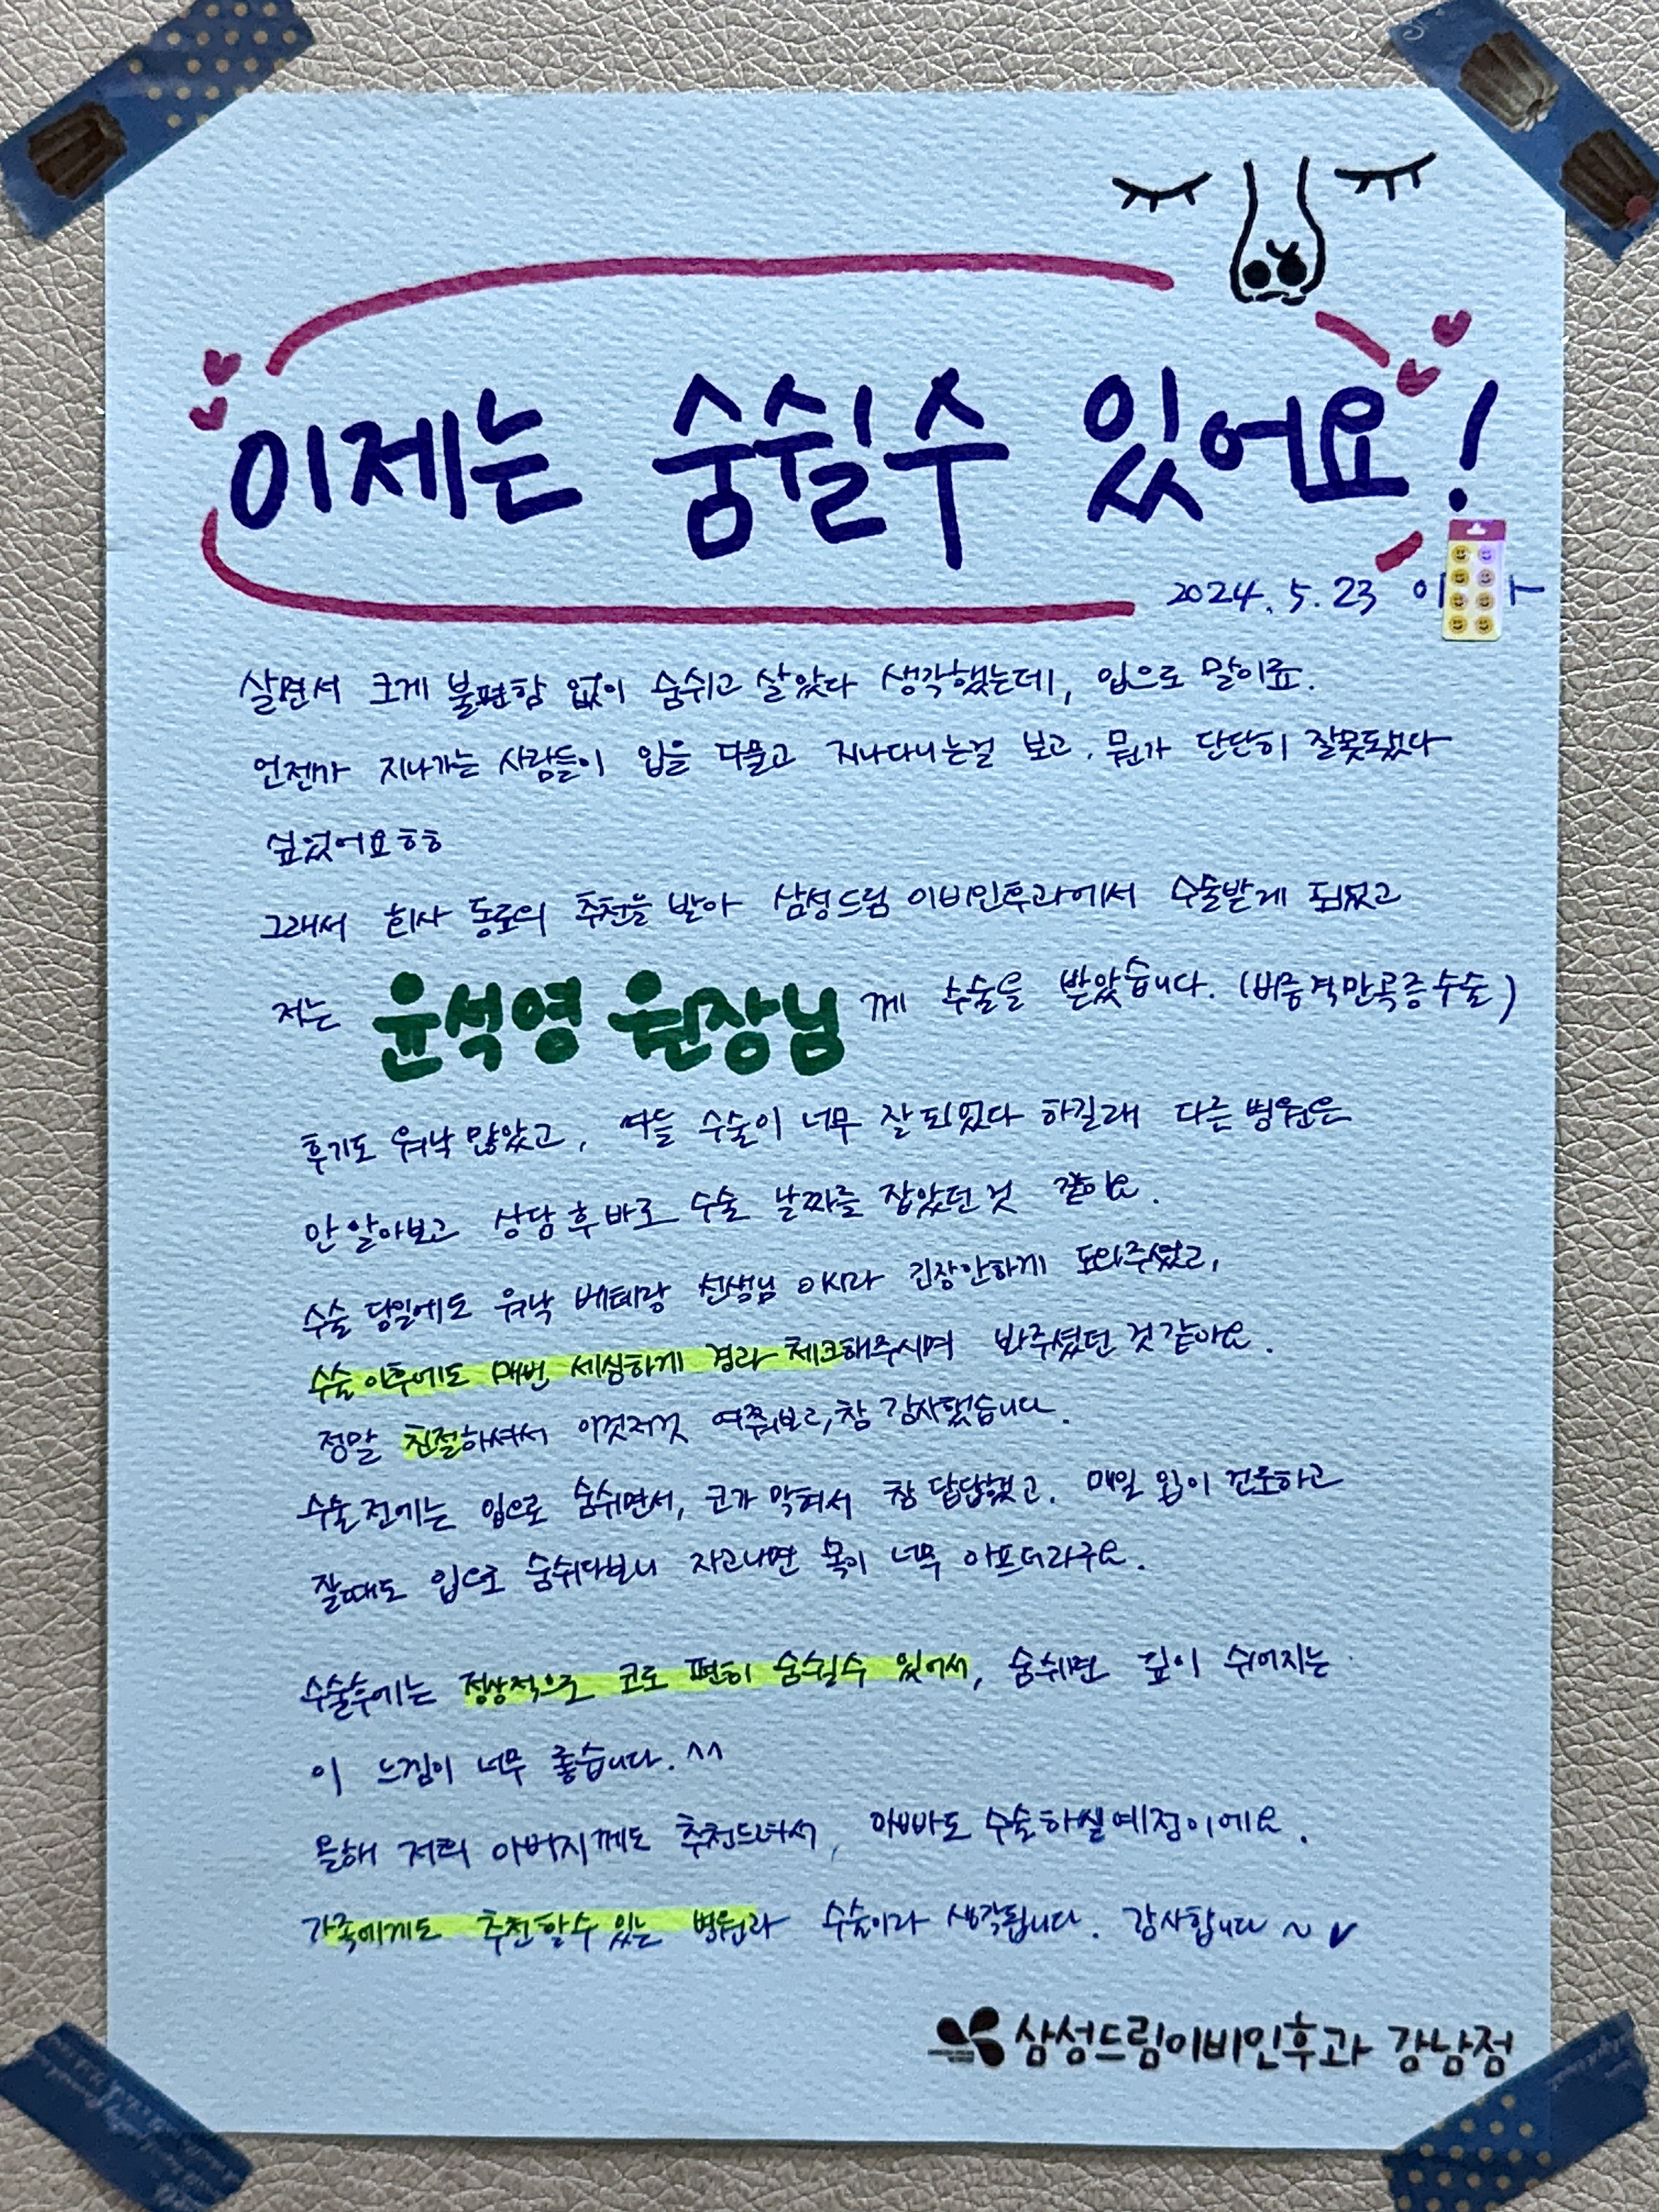 이제는 숨쉴수 있어요!
2024. 5. 23
살면서 크게 불편함 없이 숨쉬고 살았다 생각했는데, 입으로 말이죠.
언젠가 지나가는 사람들이 입을 다물고 지나다니는걸 보고, 뭔가 단단히 잘못됐다
싶었어요ㅎㅎ
그래서 회사 동료의 추천을 받아 삼성드림 이비인후과에서 수술받게 되었고
저는 윤석영 원장님께 수술을 받았습니다. (비중격만곡증수술)
후기도 워낙 많았고, 다들 수술이 너무 잘 되었다 하길래 다른 병원은
안 알아보고 상담 후 바로 수술 날짜를 잡았던 것 같아요.
수술 당일에도 워낙 베테랑 선생님 이시라 긴장안하게 도와주셨고,
수술 이후에도 매번 세심하게 경과 체크해주시며 봐주셨던 것 같아요.
정말 친절하셔서 이것저것 여쭤보고, 참 감사했습니다.
수술 전에는 입으로 숨쉬면서, 코가 막혀서 참 답답했고. 매일 입이 건조하고
잘때도 입으로 숨쉬다보니 자고나면 목이 너무 아프더라구요.
수술후에는 정상적으로 코로 편히 숨쉴수 있어서, 숨쉬면 깊이 쉬어지는
이 느낌이 너무 좋습니다. ^^
올해 저희 아버지께도 추천드려서, 아빠도 수술하실예정이에요.
가족에게도 추천할수 있는 병원과 수술이라 생각됩니다. 감사합니다~
삼성드림이비인후과 강남점